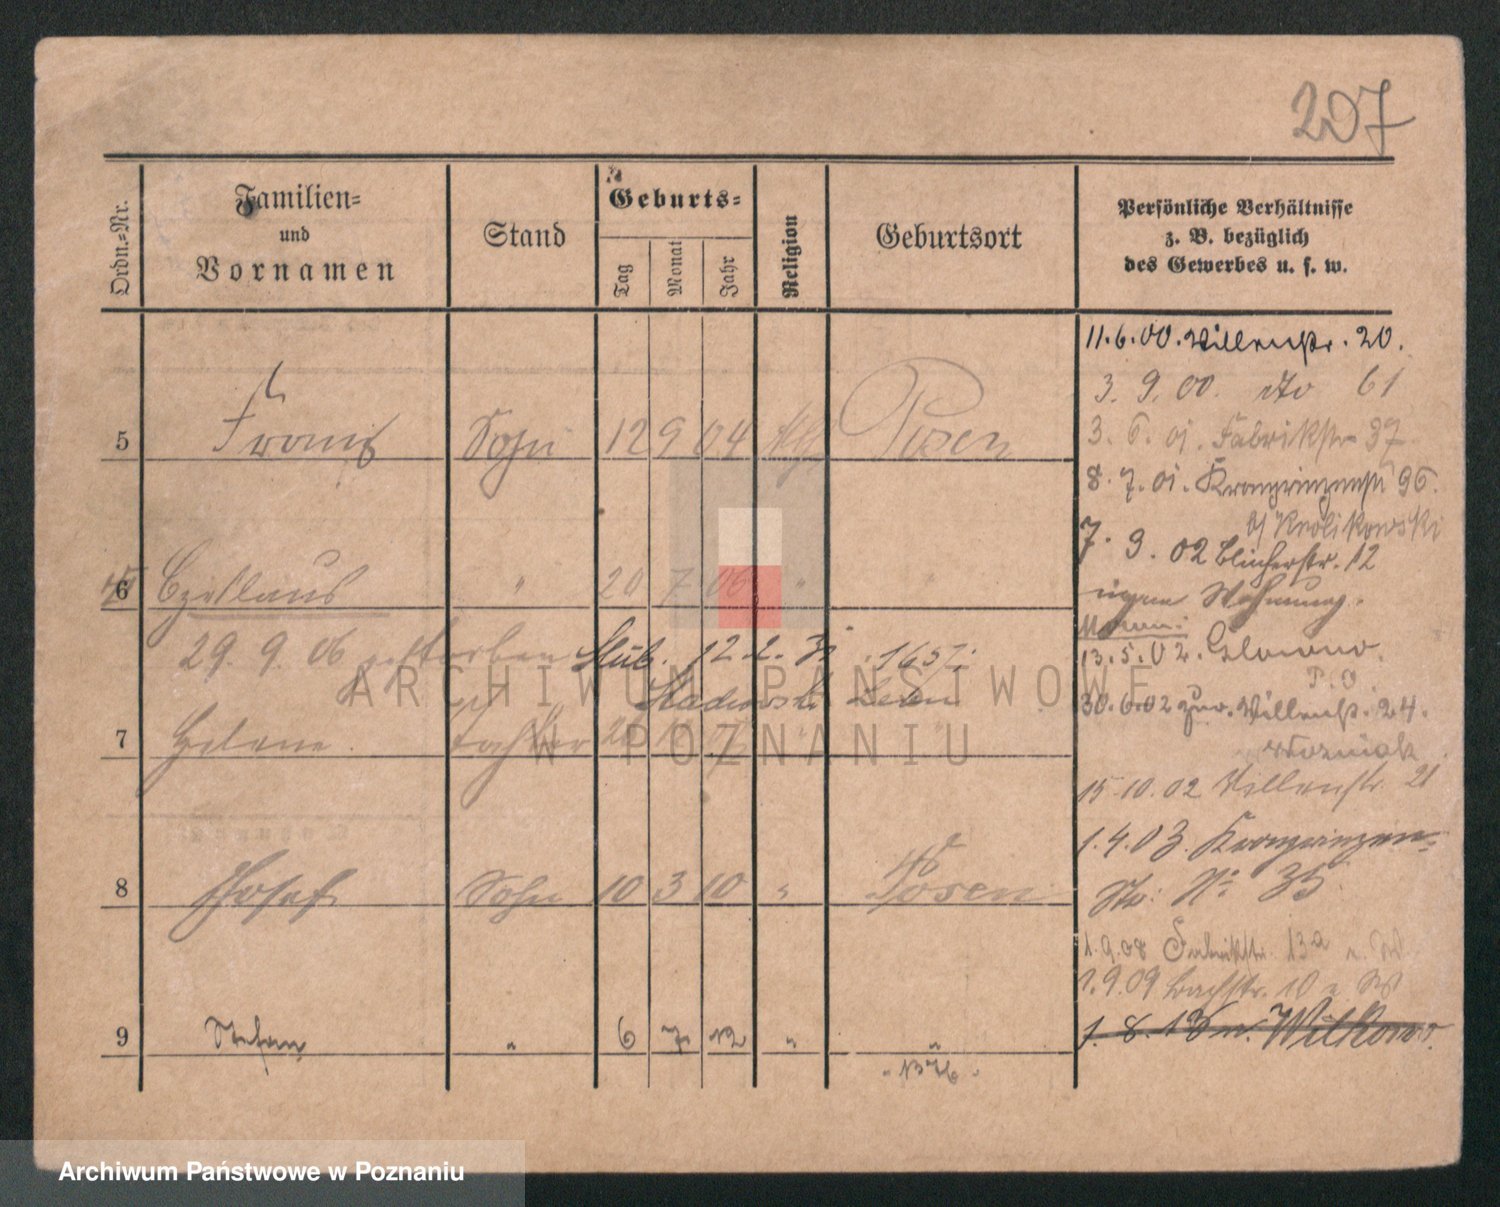 207
Ordn.-Nr.
Familien-
und
Vornamen
Stand
Geburts-
Tag
Monat
Jahr
Religion
Geburtsort
Persönliche Verhältnisse
z. B. bezüglich
des Gewerbes u. s. w.
5 Franz Sohn 12 9 04 Posen
6 Czeslaus " 20 7 06 "
29. 9. 06 gestorben 12. 2. 1657
7 Helene Tochter
8 Josef Sohn 10 3 10 " Posen
9 Stefan " 6 7 12 " "
11. 6. 00. Villenstr. 20.
3. 9. 00. dto 61
3. 6. 01. Fabrikstr 37
8. 7. 01. Kronprinzenstr 96.
b/ Krolikowski
7. 9. 02 Blücherstr. 12
eigene Wohnung.
13. 5. 02. Glowno.
30. 6. 02 zur. Villenstr. 24.
Wozniak
15. 10. 02 Villenstr. 21
1. 4. 03. Kronprinzen-
Str: No 35
1. 9. 08 Fabrikstr. 13a e. W
1. 9. 09 Bachstr. 10 e W
1. 8. 13 n. Wilkowo.
ARCHIWUM PAŃSTWOWE
W POZNANIU
Archiwum Państwowe w Poznaniu